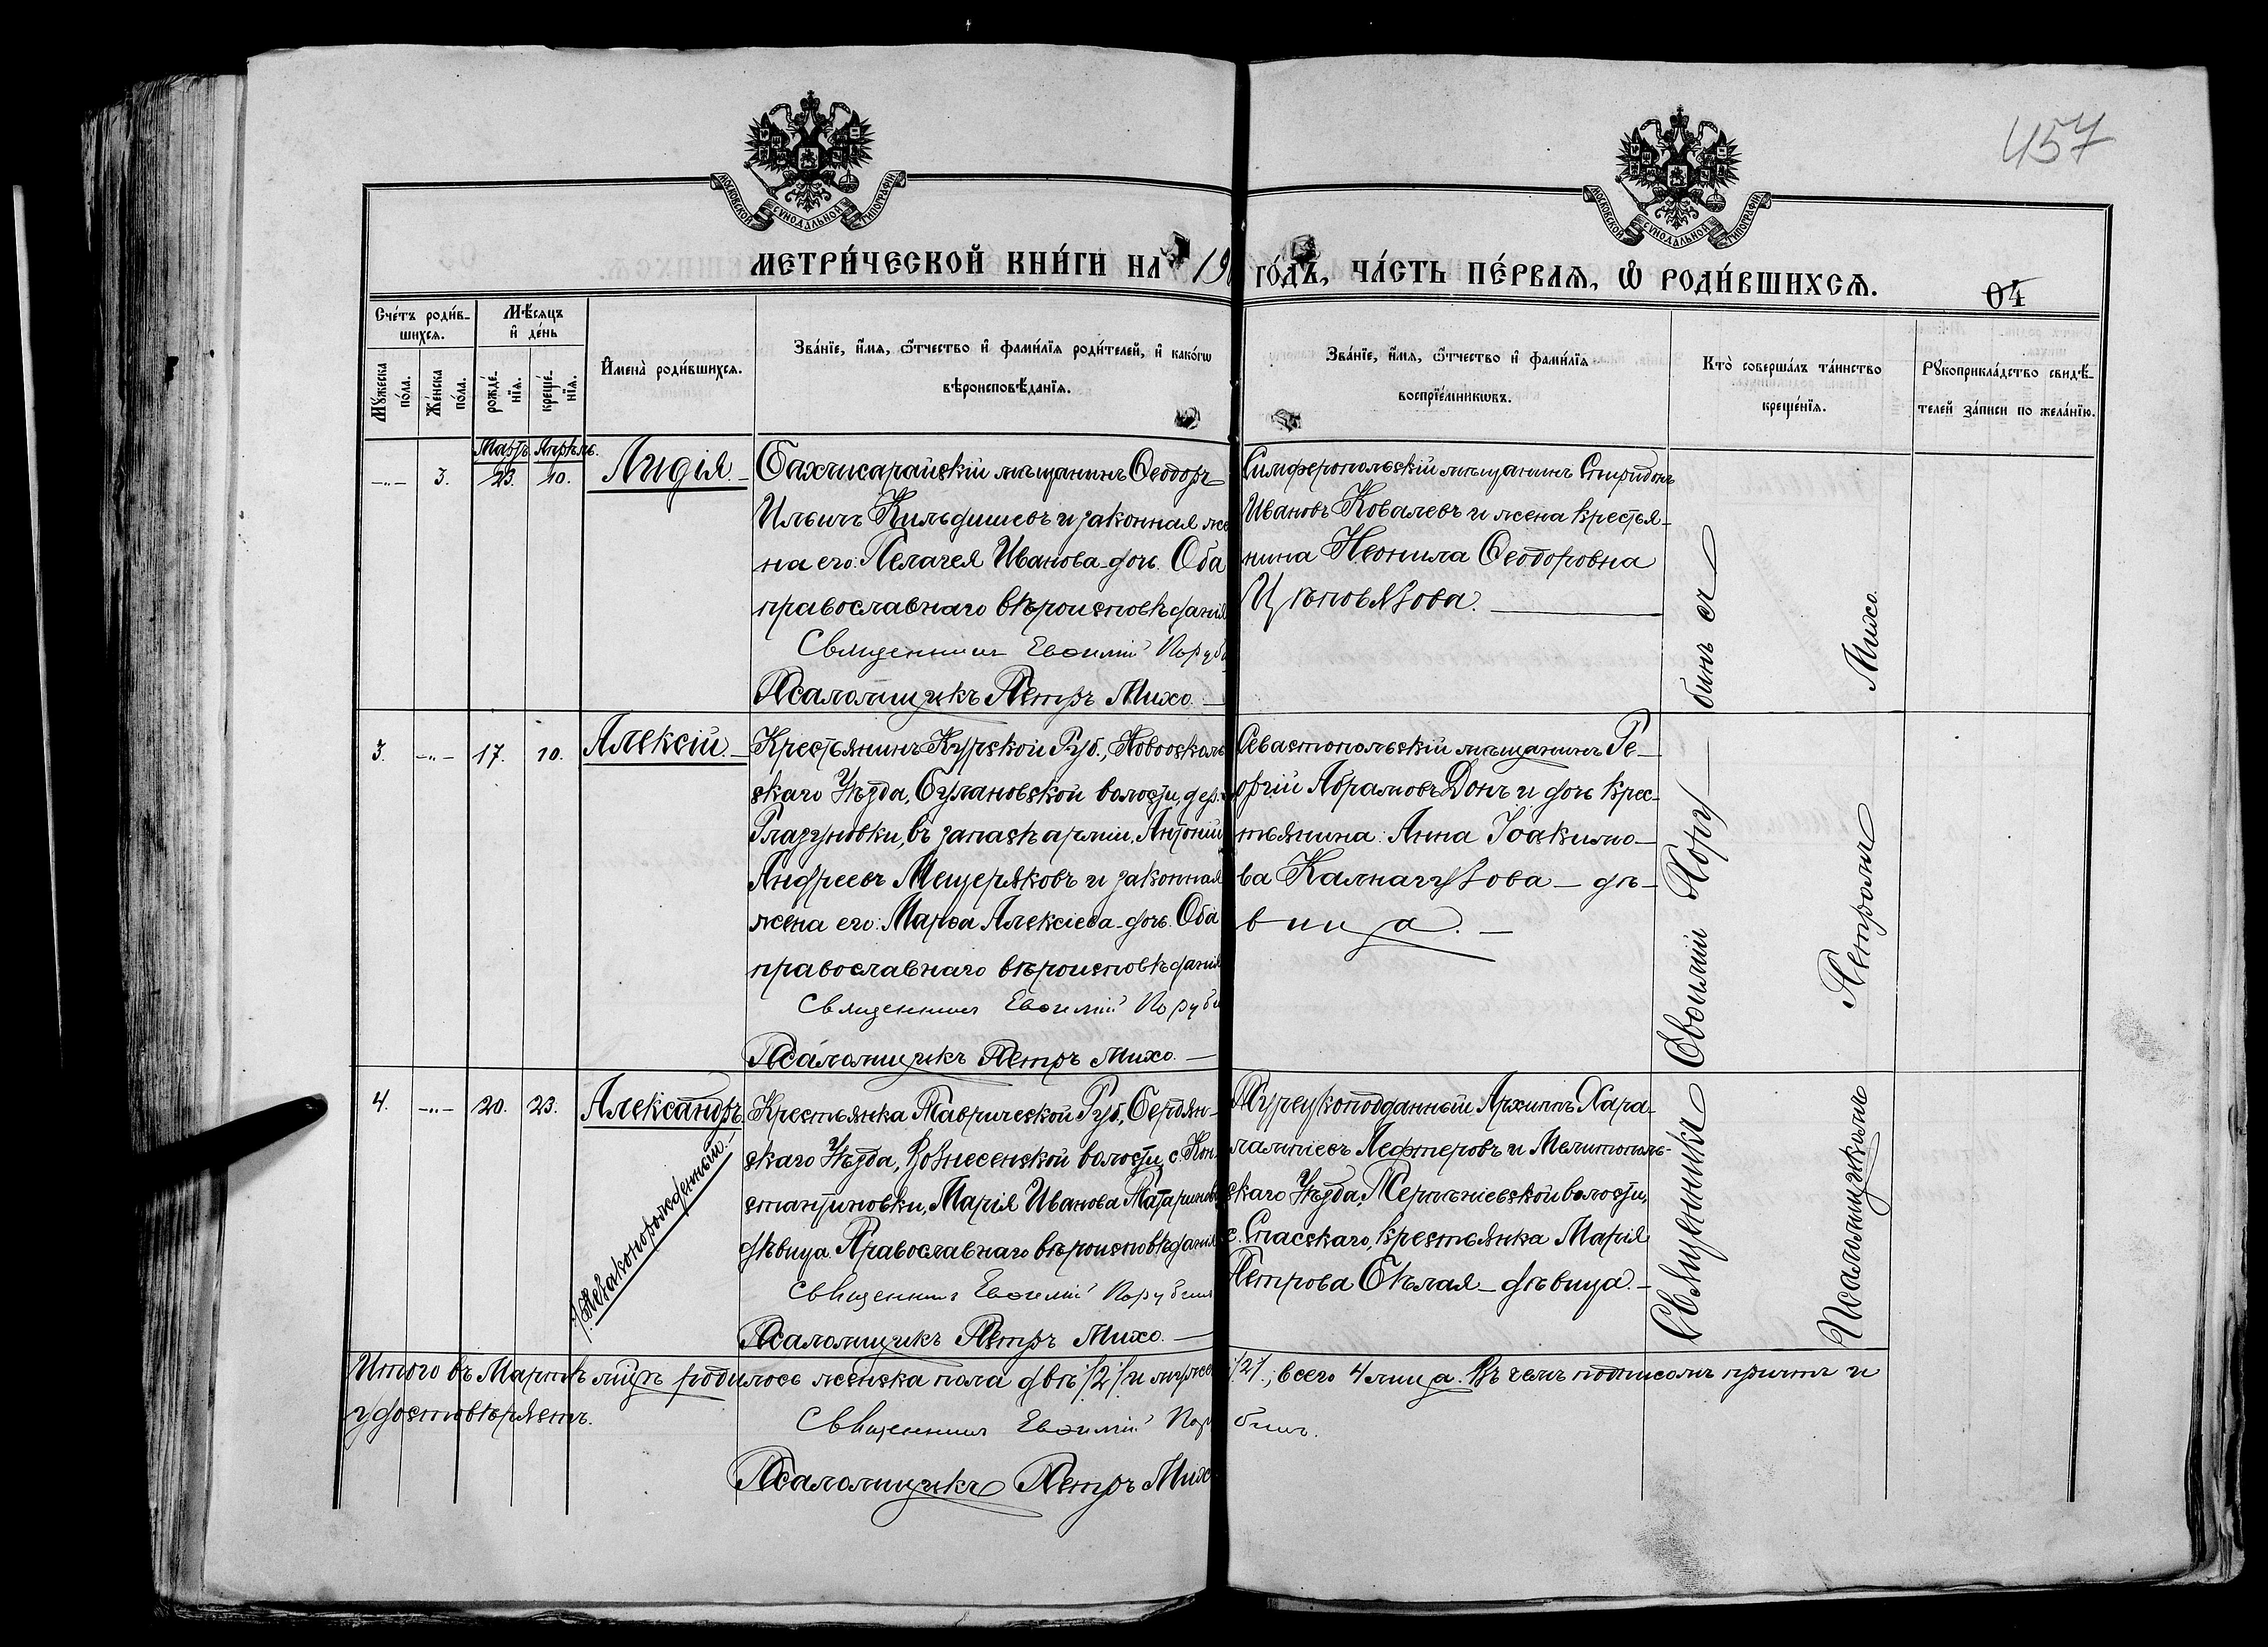 457
МОСКОВСКОЙ СѴНОДАЛЬНОЙ ТИПОГРАФІИ
МОСКОВСКОЙ СѴНОДАЛЬНОЙ ТИПОГРАФІИ
МЕТРИ́ЧЕСКОЙ КНИ́ГИ НА 19
ГО́ДЪ, ЧА́СТЬ ПЕ́РВАѦ, Ѡ РОДИ́ВШИХСѦ.
04
Сче́тъ роди́в-
шихсѧ.
Мѣ́сѧцъ
и де́нь
Мꙋ́жеска по́ла.
Же́нска по́ла.
рожде́-
нїѧ.
креще́-
нїѧ.
Имена̀ роди́вшихсѧ.
Зва́нїе, и́мѧ, ѻ́тчество и фами́лїѧ роди́телей, и како́гѡ
вѣроисповѣ́данїѧ.
Зва́нїе, и́мѧ, ѻ́тчество и фами́лїѧ
воспрїе́мникѡвъ.
Кто̀ соверша́лъ та́инство
креще́нїѧ.
Рꙋкоприкла́дство свидѣ́-
телей за́писи по жела́нїю.
Мартъ Апрѣль.
-"- 3. 23. 10. Лидія.
Бахчисарайскій мѣщанинъ Ѳеодоръ
Ильичъ Кильдишевъ и законная же
на его: Пелагея Иванова-дочь. Оба
православнаго вѣроисповѣданія
Священникъ Евѳимій Поруби
Псаломщикъ Петръ Михо.
Симферопольскій мѣщанинъ Спиридонъ
Ивановъ Ковалевъ и жена крестья-
нина Неонила Ѳеодоровна
Цѣповязова.
3. -"- 17. 10. Алексій.
Крестьянинъ Курской Губ., Новоосколь
скаго Уѣзда, Булановской волости, дер.
Глазуновки, въ запасѣ арміи, Антоній
Андреевъ Мещеряковъ и законная
жена его: Марѳа Алексіева-дочь. Оба
православнаго вѣроисповѣданія
Священникъ Евѳимій Поруби
Псаломщикъ Петръ Михо.
Севастопольскій мѣщанинъ Ге-
оргій Абрамовъ Донъ и дочь крес-
тьянина: Анна Іоакимо-
ва Калнагузова - дѣ-
вица.
4. -"- 20. 23. Александръ.
/:Незаконорожденный:/
Крестьянка Таврической Губ., Бердян-
скаго Уѣзда, Вознесенской волости, с. Кон
стантиновки, Марія Иванова Татаринова
дѣвица. Православнаго вѣроисповѣданія
Священникъ Евѳимій Порубинъ
Псаломщикъ Петръ Михо.
Турецкоподданный Архипъ Хара-
лампіевъ Лефтеровъ и Мелитополь-
скаго Уѣзда, Терпѣніевской волости,
с. Спаскаго, крестьянка Марія
Петрова Бѣлая - дѣвица.
Священникъ Евѳимій Пору-
бинъ съ
Псаломщикомъ Петромъ Михо.
Итого въ Мартѣ мцѣ родилось женска пола двѣ /2/ и мужес /2/, всего 4 лица. Въ чемъ подписомъ причтъ и
удостовѣряетъ.
Священникъ Евѳимій Пору бинъ.
Псаломщикъ Петръ Михо